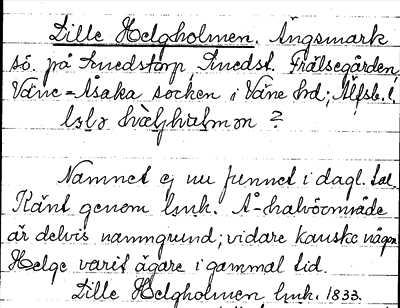 Lille Helgholmen. Ängsmark
sö. på Smedstorp, Smedst. Frälsegården,
Väne-Åsaka socken i Väne hrd; Älfsb. l.
hælghɑlmən ?
Namnet ej nu funnet i dagl. tal.
Känt genom lmk. Å-halvöområde
är delvis namngrund; vidare kanske någon
Helge varit ägare i gammal tid.
Lille Helgholmen lmk. 1833.